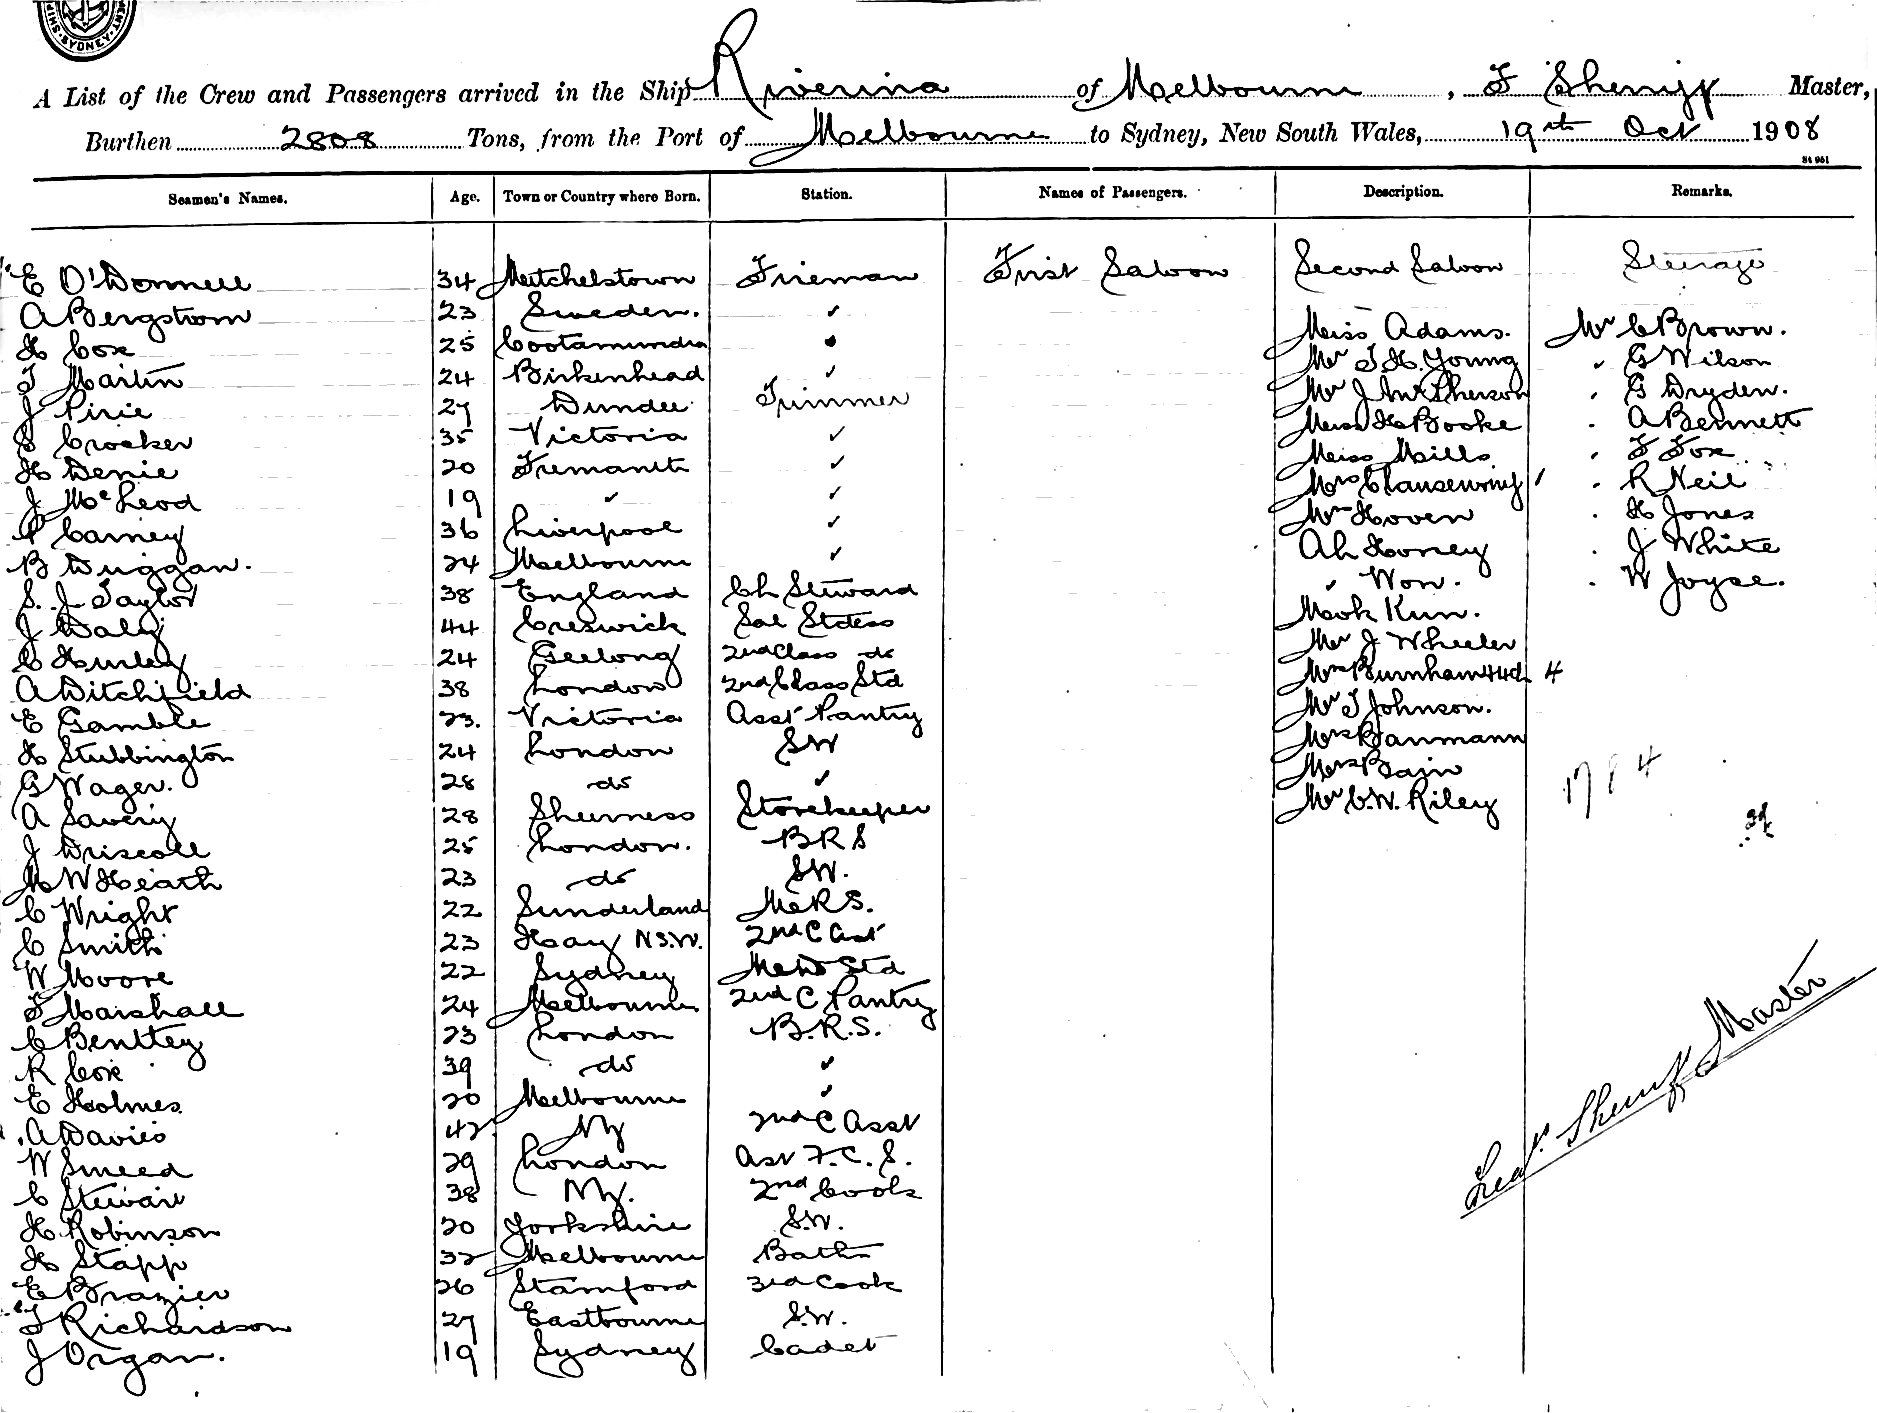 SYDNEY
A List of the Crew and Passengers arrived in the Ship Riverina of Melbourne, F Sherriff Master,
Burthen 2808 Tons, from the Port of Melbourne to Sydney, New South Wales, 19th Oct 1908
St 961
Seamen's Names. Age. Town or Country where Born. Station. Names of Passengers. Description. Remarks.
E O'Donnell 34 Mitchelstown Fireman First Saloon Second Saloon Steerage
A Bergstrom 23 Sweden. ✓ Miss Adams. Mr C Brown.
H Cox 25 Cootamundra Mr T H. Young G Wilson
T Martin 24 Birkenhead ✓ Mr J McPherson G Dryden.
J Pirie 27 Dundee Trimmer Miss H Booke A Bennett
S Crocker 35 Victoria ✓ Miss Mills F Fox
H Denie 20 Fremantle ✓ Mrs R Neil
J McLeod 19 ✓ ✓ Mr Hoven H Jones
P Carney 36 Liverpool ✓ Ah Hooney J White
B Duggan. 24 Melbourne ✓ Won. W Joyce.
S. J Taylor 38 England Ch Steward Mook Kun.
J Daly 44 Creswick Sal Stdess Mr J Wheeler
C Hurley 24 Geelong 2nd Class do Mrs Burnham 4
A Ditchfield 38 London 2nd Class Std Mr T Johnson.
E Gamble 23. Victoria Asst Pantry Mrs Banmann
H Stubbington 24 London SW Mrs Bain
G Wager. 28 do ✓ Mr C.W. Riley
A Savery 28 Sheerness Storekeeper
J Driscoll 25 London. BRS
W Heath 23 do SW.
C Wright 22 Sunderland MeRS.
C Smith 23 Hay N.S.W. 2nd C Asst
W Moore 22 Sydney Std
F Marshall 24 Melbourne 2nd C Pantry
C Benttey 23 London B.R.S.
R Cox 39 do ✓
E Holmes 20 Melbourne ✓
A Davies 42 NZ 2nd C Asst
W Smeed 29 London Asst F.C.S.
C Stewart 38 NZ. 2nd Cook
H Robinson 20 Yorkshire S.W.
H Stapp 32 Melbourne Baths
E Brazier 26 Stamford 3rd Cook
T Richardson 27 Eastbourne S.W.
J Organ. 19 Sydney Cadet
Fredk. Sherriff Master